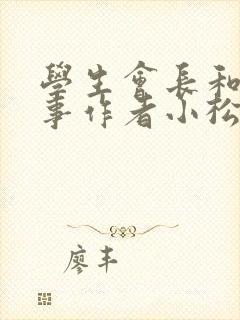 學生會長和
事作者小松
廖丰